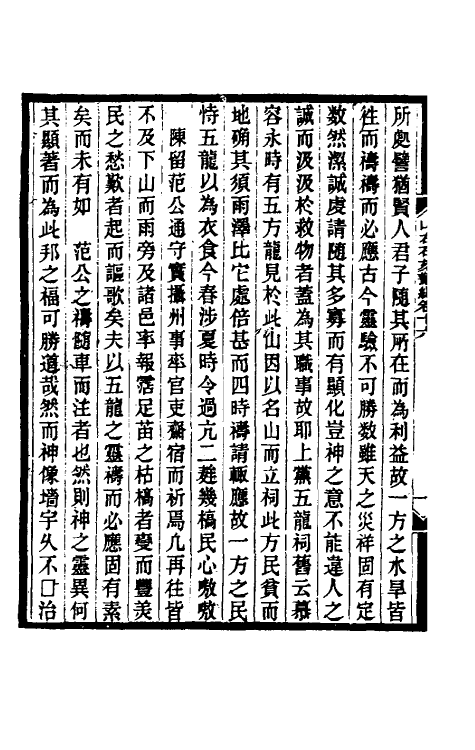 所興譬猶賢人君子隨其所在而為利益故一方之水旱皆
徃而禱禱而必應古今靈驗不可勝数雖天之災祥固有定
数然潔誠虔請隨其多寡而有顯化豈神之意不能違人之
誠而汲汲於救物者蓋為其職事故耶上黨五龍祠舊云慕
容永時有五方龍見於此山因以名山而立祠此方民貧而
地确其須雨澤比它處倍甚而四時禱請輙應故一方之民
恃五龍以為衣食今春涉夏時令過亢二麰幾槁民心嗷嗷
陳留范公通守實攝州事率官吏齋宿而祈焉凢再往皆
不及下山而雨旁及諸邑率報霑足苗之枯槁者變而豐羙
民之愁歎者起而謳歌矣夫以五龍之靈禱而必應固有素
矣而未有如　范公之禱隨車而注者也然則神之靈異何
其顯著而為此邦之福可勝道哉然而神像墻宇乆不囗治
山右石刻叢編卷十六